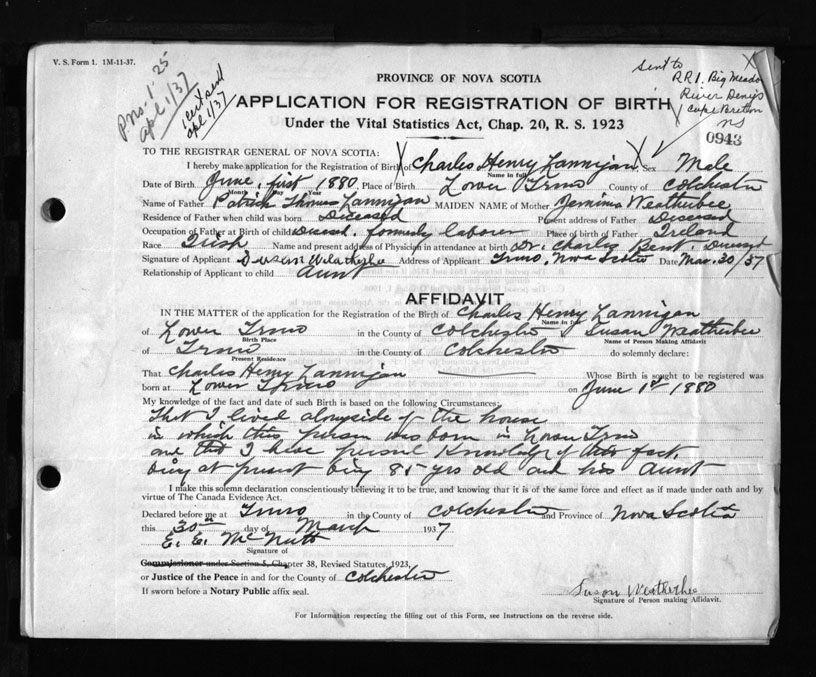 V. S. Form 1. 1M-11-37.
P.no-1.25
apl 1/37
1 cert sent
apl 1/37
Sent to
R.R.1. Big Meado
River Denys
Cape Breton
NS
PROVINCE OF NOVA SCOTIA
APPLICATION FOR REGISTRATION OF BIRTH
Under the Vital Statistics Act, Chap. 20, R. S. 1923
0943
TO THE REGISTRAR GENERAL OF NOVA SCOTIA:
I hereby make application for the Registration of Birth of Charles Henry Lannigan Sex Male
Name in full
Date of Birth June, first 1880 Place of Birth Lower Truro County of Colchester
Month Day Year
Name of Father Patrick Thomas Lannigan MAIDEN NAME of Mother Jemima Weatherbee
Residence of Father when child was born Diseased Present address of Father Diseased
Occupation of Father at Birth of child Diseased. formerly laborer Place of birth of Father Ireland
Race Irish Name and present address of Physician in attendance at birth Dr. Charles Bent. Diseased
Signature of Applicant Susan Weatherbe Address of Applicant Truro, Nova Scotia Date Mar. 30/37
Relationship of Applicant to child aunt
AFFIDAVIT
IN THE MATTER of the application for the Registration of the Birth of Charles Henry Lannigan
Name in full
of Lower Truro in the County of Colchester Susan Weatherbee
Birth Place Name of Person Making Affidavit
of Truro in the County of Colchester do solemnly declare:
Present Residence
That Charles Henry Lannigan Whose Birth is sought to be registered was
born at Lower Truro on June 1st 1880
My knowledge of the fact and date of such Birth is based on the following Circumstances:
That I lived alongside of the house
in which this person was born in Lower Truro
and that I have personal Knowledge of this fact,
being at present being 85 yrs old and his aunt
I make this solemn declaration conscientiously believing it to be true, and knowing that it is of the same force and effect as if made under oath and by
virtue of The Canada Evidence Act.
Declared before me at Truro in the County of Colchester and Province of Nova Scotia
this 30th day of March 1937
E. E. McNutt
Signature of
Commissioner under Section 5, Chapter 38, Revised Statutes, 1923,
or Justice of the Peace in and for the County of Colchester
If sworn before a Notary Public affix seal.
Susan Weatherbe
Signature of Person making Affidavit.
For Information respecting the filling out of this Form, see Instructions on the reverse side.